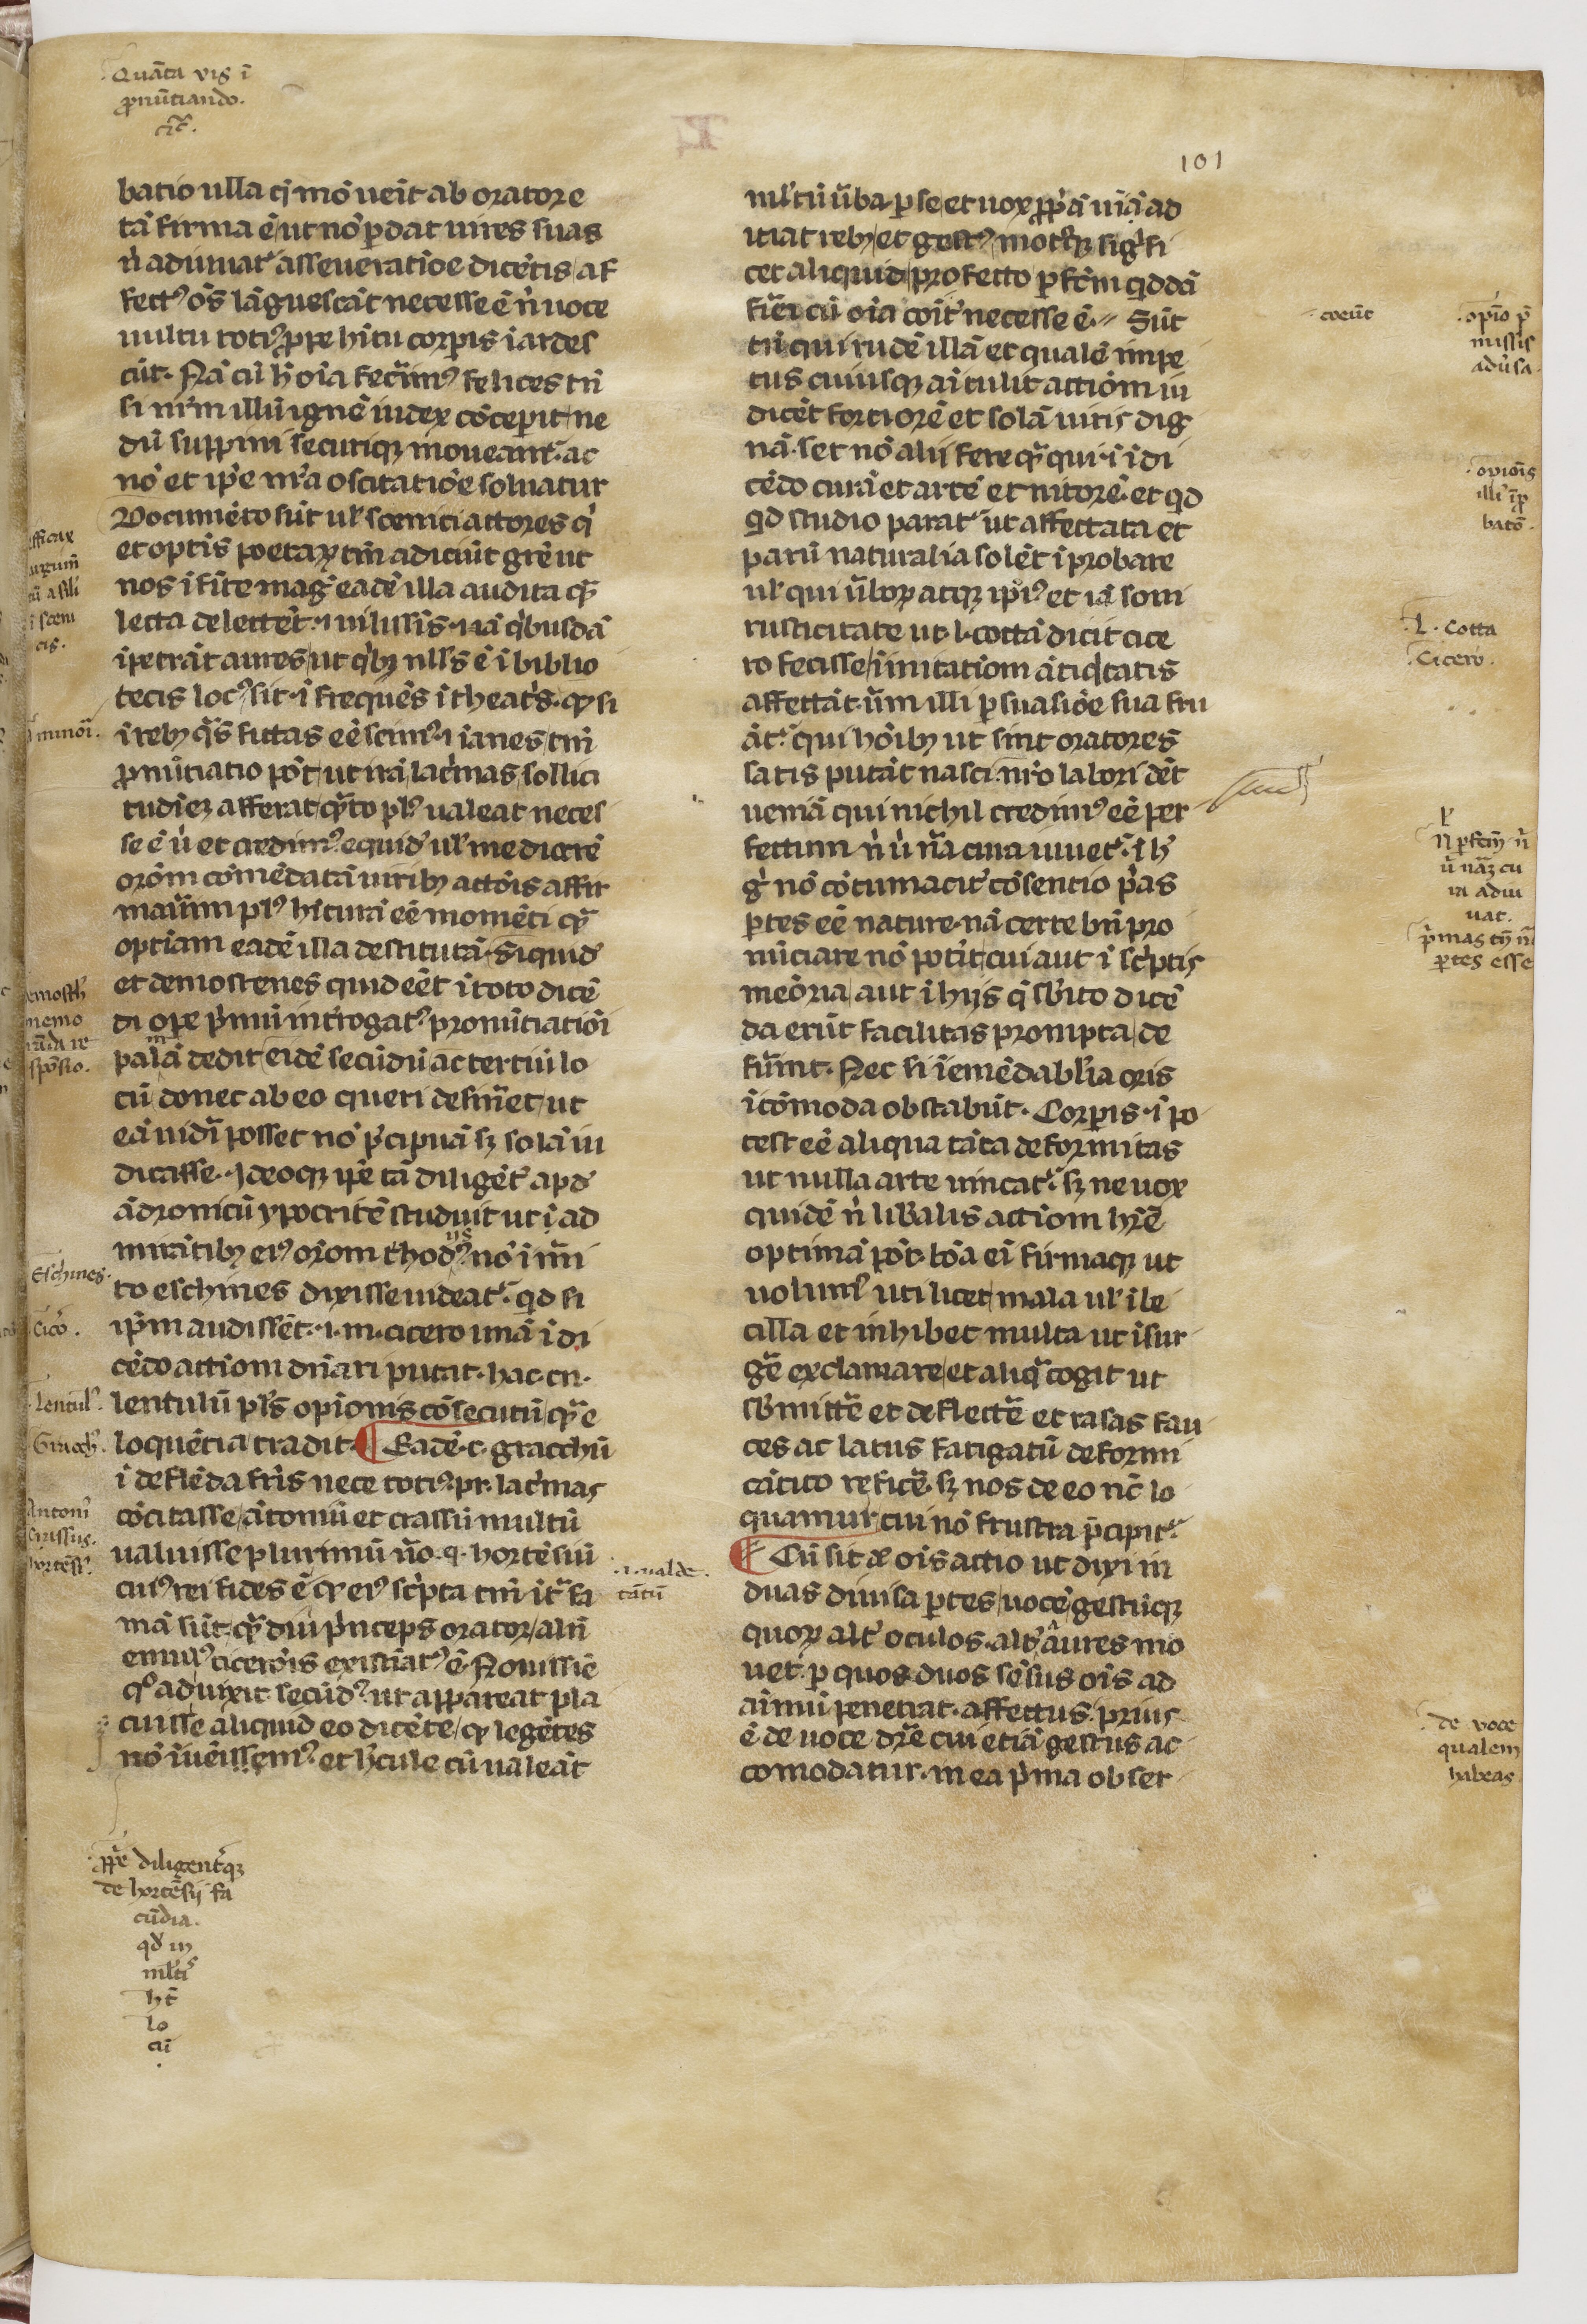 Quāta vis ī
ꝓnūtiando.
101
batio ulla q̄ mō ueit ab oratore
tā firma ē ut nō ꝑdat uires suas
n̄ adiuuat᷑ asseueratiōe dicētis af
fectꝰ oīs lāguescāt necesse ē n̄ uoce
uultu totiꝰ ꝓpe hītu corꝑis īardes
cūt. Nā cū h̄ oīa fec̄imꝰ felices tn̄
si nr̄m illū ignē iudex cōceꝑit ne
dū suppini securiqꝫ moueant᷑. ac
nō et ip̄e nr̄a oscitatiōe soluatur
Documēto sūt ul̄ scenici actores q̄
et optīs poetaꝝ tm̄ adiciūt gr̄e ut
nos īfīte maḡ eadē illa audita qȝ̄
lecta delectēt. ⁊ uilissīs. nā q̄busdā
īpetrāt aures ut q̄bꝫ nll̄s ē ī biblio
tecis locꝰ sit. ī frequēs ī theatr̄s. ꝙ si
ī rebꝫ q̄s fictas eē scimꝰ ⁊ īanes tm̄
ꝓnūtiatio pōt ut irā lac̄mas sollici
tudīeꝫ afferat q̄to plꝰ ualeat neces
se ē ū et credimꝰ. equidē ul̄ mediocrē
orōm cōmēdatā uiribꝫ actōis affir
mau̅im plꝰ hītura eē momēti qȝ̄
optiam eadē illa destitutā. Siquid̄
et demostenes quid eēt ī toto dicē
di oꝑe p̄mū introgatꝰ pronūtiatiōi
palmā dedit eidē secūdū ac tertiū lo
cū donec ab eo queri desin̄et ut
eā uid̄i posset nō p̄cipuā sꝫ solā iu
dicasse. Ideoqꝫ ip̄e tā diligēt᷑ apd̄
ādronicū ypocritē studuit ut ī ad
mirātibꝫ eiꝰ orōom rhodꝰ nō īm̄i
to eschines dixisse uideat᷑. qd si
ip̄m audissēt. ⁊ m. cicero unā ī di
cēdo actiom dn̄ari putat. hac. cn.
lentulū pl̄s opiōnis cōsecutū qȝ̄ e
loquētia tradit. ¶ Eadē. c. gracchū
ī deflēda fr̄is nece totiꝰ. pr. lac̄mas
cōcitasse ātoniū et crassū multū
ualuisse plurimū ūo. q. hortēsiū
cuiꝰ rei fides ē ꝙ eiꝰ sc̄pta tm̄ īt᷑ fa
mā sūt. q̄ diu p̄nceps orator aln̄
emulꝰ cicerōis existiatꝰ ē. Nouissīe
q̊ad uixit secūdꝰ. ut appareat pla
cuisse aliquid eo dicēte ꝙ legētes
nō īuēissemꝰ. et hercule cū ualeāt
ml̄tū ūba ꝑ se et uox ꝓpīā uiā ad
iciat rebꝫ et gestꝰ motusqꝫ sig̅fi
cet aliquid profecto ꝑfc̄m qddā
fi̅ei cū oīa coīt᷑ necesse ē. Sūt
tn̄ qui rudē illā et qualē impe
tus cuiusqꝫ aī tulit actiōm iu
dicēt fortiorē et solā uiris dig
nā. set nō alii fere qȝ̄ qui ⁊ ī di
cēdo curā et artē et nitorē. et qd
qd studio parat᷑ ut affectata et
parū naturalia solēt īprobare
ul̄ qui ūboꝝ atqꝫ ip̄iꝰ etiā soni
rusticitate ut. l. cottā dicit cice
ro fecisse īmitatiom ātiq̄tatis
affectāt. ūm illi ꝑsuasiōe sua fru
āt᷑ qui hōībꝫ ut sint oratores
satis putāt nasci. nr̄o labori dēt
ueniā qui nichil credimꝰ eē per
fectum n̄ ū nā cura iuuet᷑. ī h̄
g̊ nō cōtumacit᷑ cōsentio p̄as
ꝑtes eē nature. nā certe bn̄ pro
nūciare nō pot̄it cui aut ī sc̄ptis
meōria aut ī hijs q̄ sb̄ito dicē
da erūt facilitas prompta de
fu̅int. Nec si īemēdabl̄ia oris
īcōmoda obstabūt. Corꝑis. ī po
test eē aliqua tāta deformitas
ut nulla arte uincat᷑. sꝫ ne uox
quidē n̄ lib̄alis actiom hr̄e
optimā pōt. bōa ei firmaqꝫ ut
uolumꝰ uti licet mala ul̄ ībe
cilla et inhibet multa ut īsur
gē exclamare et aliq̄ cogit ut
sb̄mittē et deflectē et rasas fau
ces ac latus fatigatū deformi
cātico reficē. sꝫ nos de eo nc̄ lo
quamur cui nō frustra p̄cipit᷑.
¶ Cū sit aūt ois actio ut dixi in
duas diuisa ꝑtes uocē gestūqꝫ
quoꝝ alt᷑ oculos. alt᷑ aures mo
uet. ꝑ quos duos sēsus ois ad
aīmū penetrat affectus. prius
ē de uoce dr̄e cui etiā gestus ac
comodatur. in ea p̄ma obser
cis.
Eschines.
Cicō.
Lentulꝰ.
Gracch̄.
Antoniꝰ
Crassus.
hortēsi.
.⁊ ualde.
tātū
ꝓpē diligentqꝫ
de hortēsij fa
cūdia.
qd̄ in
ml̄tis
ht̄
lo
cū
coeūt
opīo p̄
missis
adūsa
opiōīs
illiꝰ īꝓ
batō.
L. Cotta
Cicero.
N̄ ꝑfcm̄ n̄
ū nāꝫ cu
ra adiu
uat.
p̄mas tn̄ n̄e
ꝑtes esse
de voce
qualem
habeas